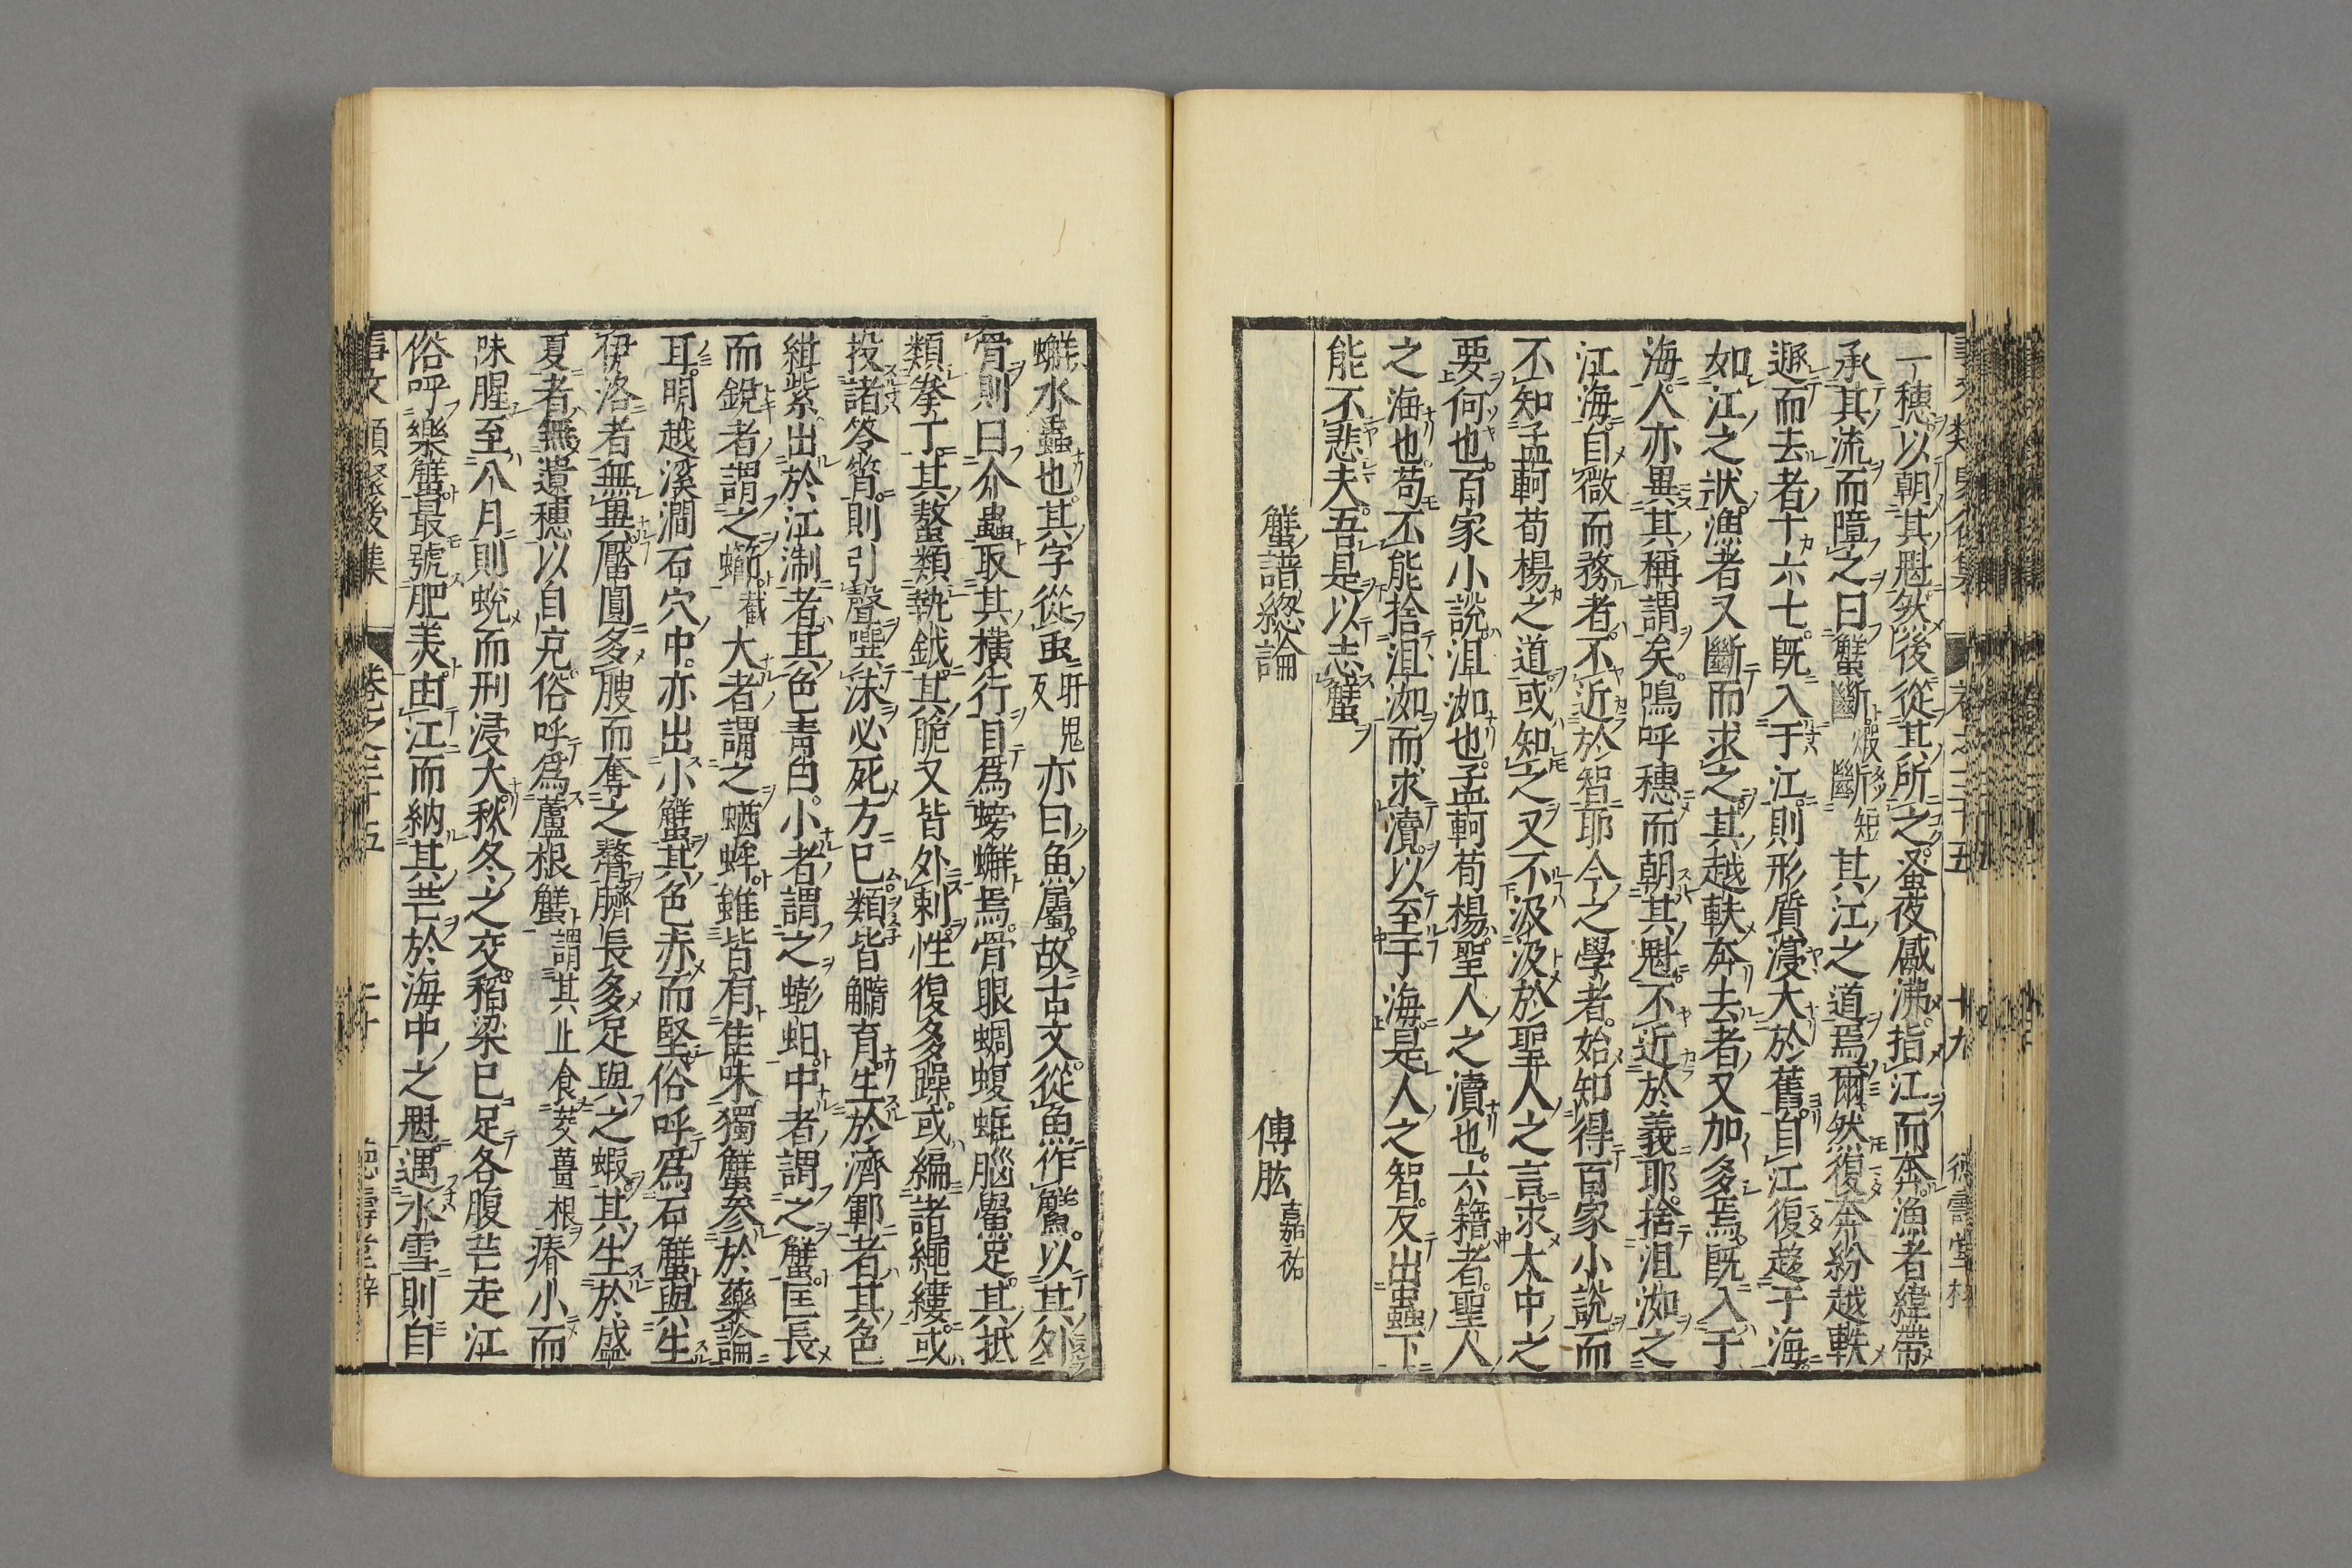 一穗以朝其魁然後從其所之蚤夜觱沸指江而奔漁者緯帶
承其流而障之曰蟹斷斷短其江之道焉爾然復奔紛越軼
遯而去者十六七既入于江則形質寖大於舊自江復趍于海
如江之狀漁者又斷而求之其越軼奔去者又加多焉既入于
海人亦異其稱謂矣嗚呼穗而朝其魁不近於義耶捨沮洳之
江海自微而務者不近於智耶今之學者始知得百家小說而
不知孟軻荀楊之道或知之又不汲汲於聖人之言求大中之
要何也百家小說沮洳也孟軻荀楊聖人之瀆也六籍者聖人
之海也苟不能捨沮洳而求瀆以至于海是人之智反出蟲下
能不悲夫吾是以志蟹
蟹譜總論 傅肱嘉祐
蠏水蟲也其字從虫亦曰魚屬故古文從魚作䲒以其外
骨則曰介蟲取其橫行目爲螃蠏焉骨眼蜩蝮蛭腦鱟足其抵
類拳丁其螯類執鉞其脆又皆外剌性復多躁或編諸繩縷或
投諸笭箵則引聲噀沫必死方已類皆觿育生於濟鄆者其色
紺紫出於江淛者其色青白小者謂之蟛蚏中者謂之蟹匡長
而銳者謂之蠘截大者謂之蝤蛑雖皆有佳味獨蟹參於藥論
耳明越溪澗石穴中亦出小蟹其色赤而堅俗呼爲石蟹與生
伊洛者無異厴圓多膄而奪之螯臍長多足與之蝦其生於盛
夏者無遺穗以自充俗呼爲蘆根蟹謂其止食茭蘆根瘠小而
味腥至八月則蛻而刑浸大秋冬之交稻粱已足各腹芒走江
俗呼樂蟹最號肥美由江而納其芒於海中之魁遇氷雪則自